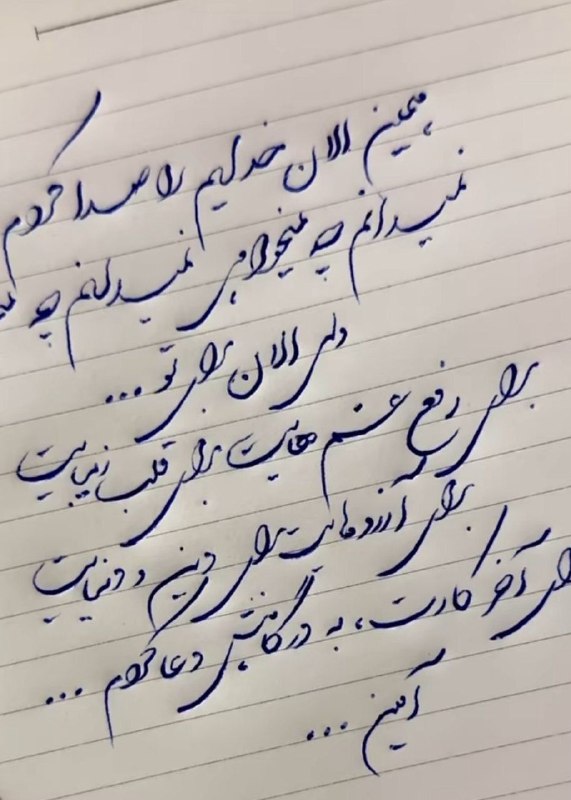 همین الان خدایم را صدا کردم
نمیدانم چه میخواهی نمیدانم چه
ولی الان برای تو ...
برای رفع غم هایت برای قلب زیبایت
برای آرزوهایت برای دین و دنیایت
برای آخر کارت، به درگاهش دعا کردم ...
آمین ...